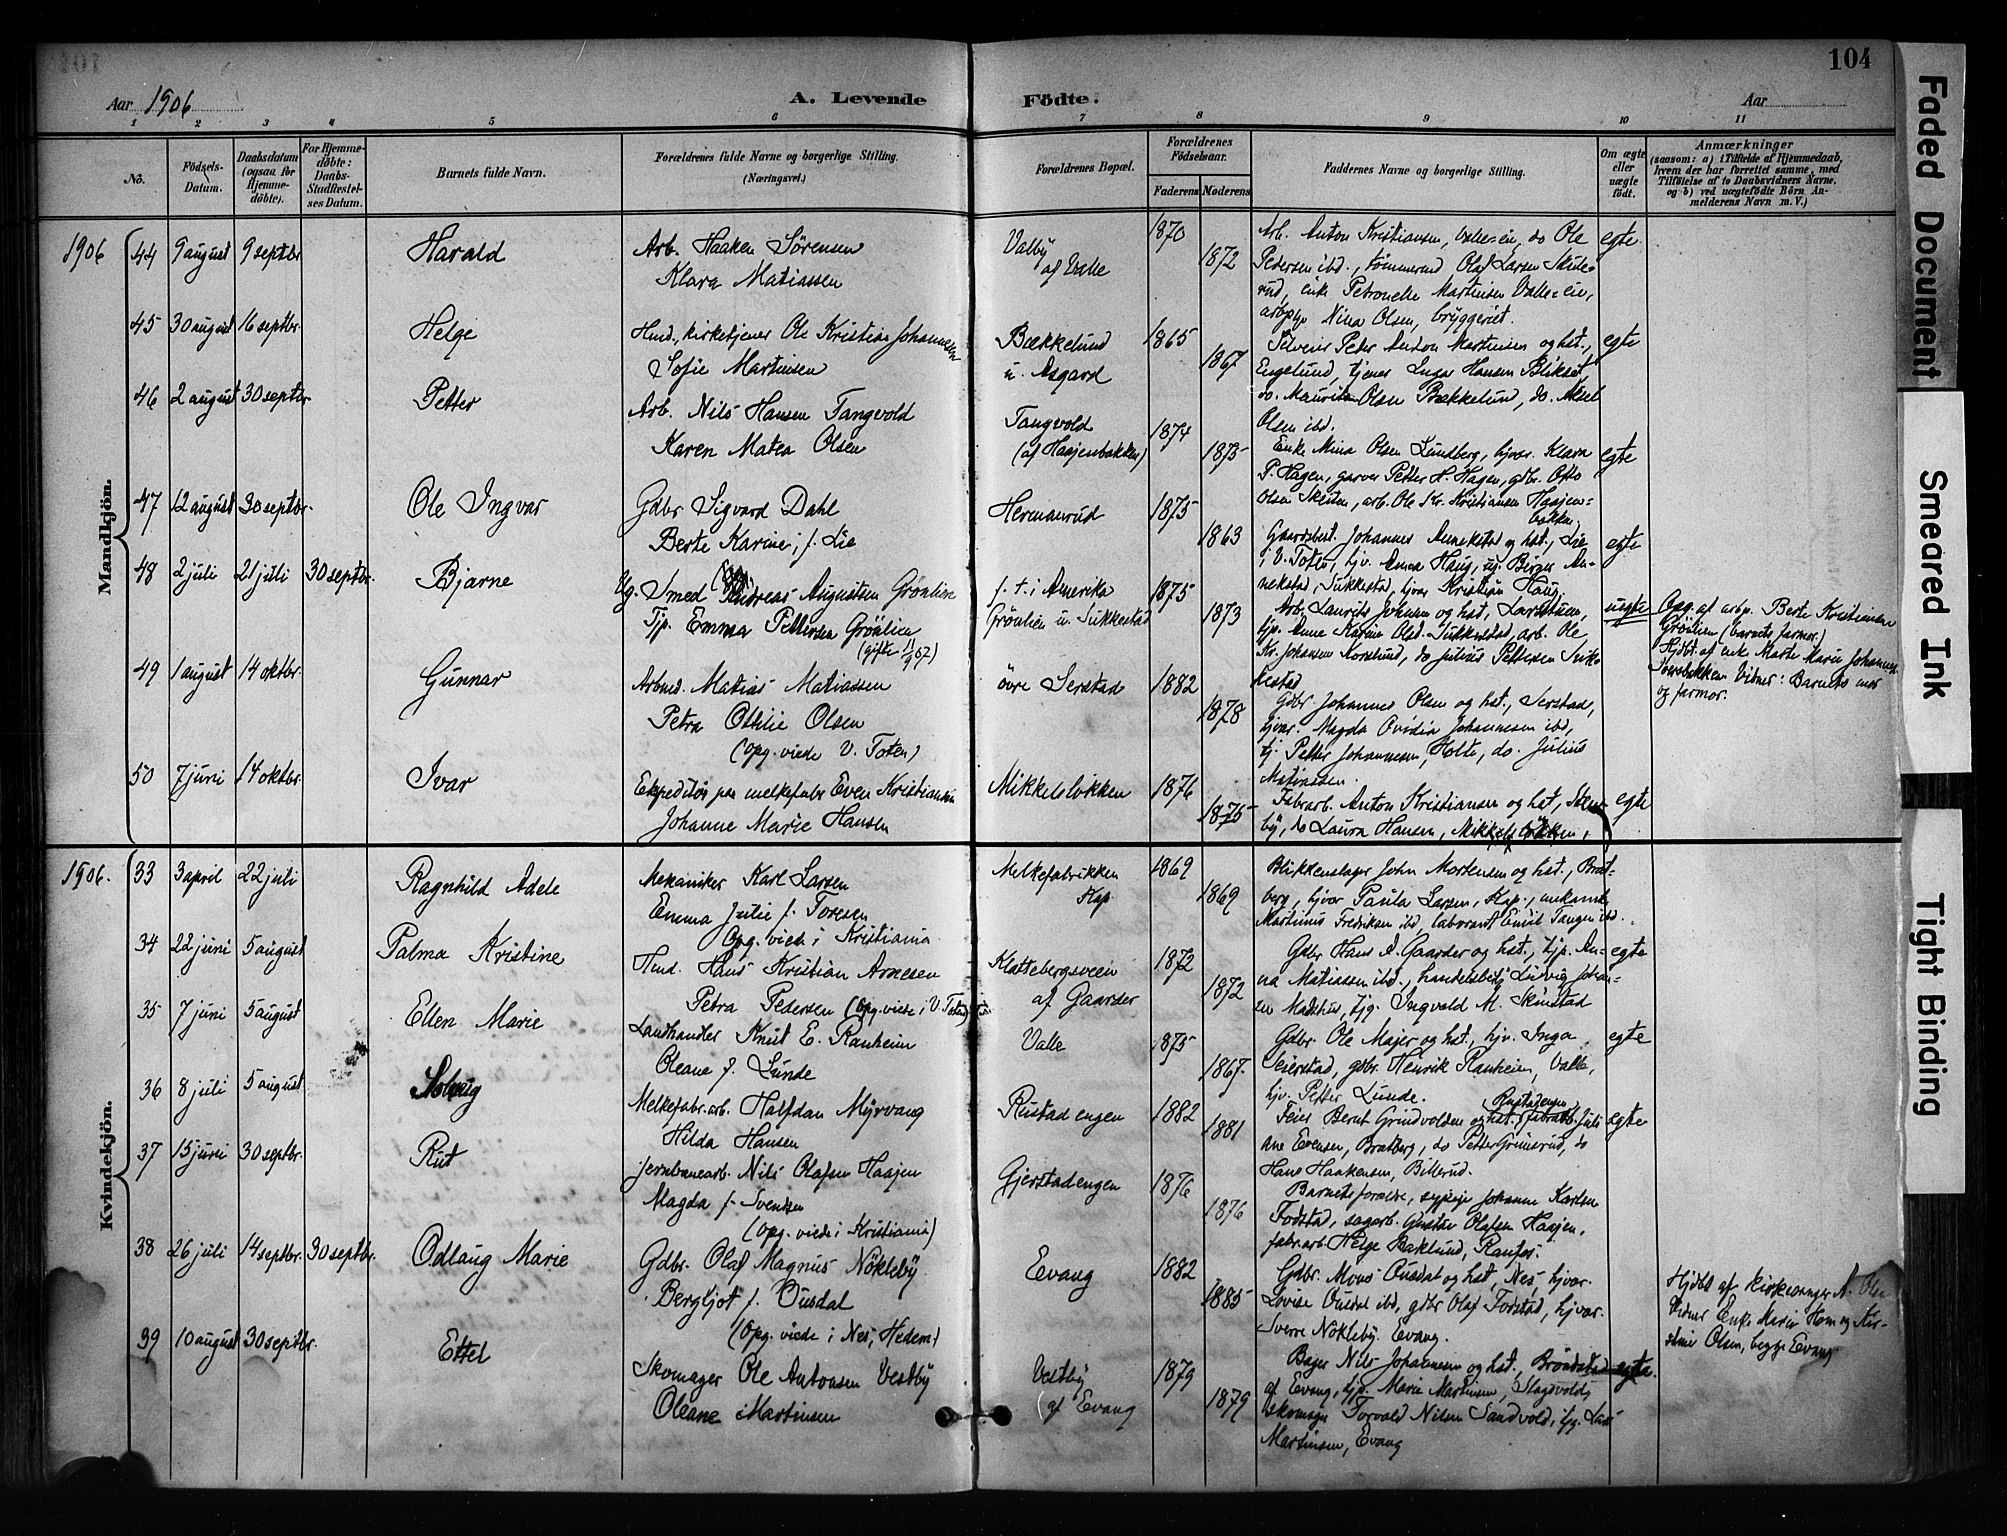 104
Aar 1906
A. Levende
Födte.
Aar
1 2 3 4 5 6 7 8 9 10 11
No.
Födsels-Datum.
Daabsdatum (ogsaa for Hjemmedöbte).
For Hjemmedöbte: Daabs-Stadfestelses Datum.
Barnets fulde Navn.
Forældrenes fulde Navne og borgerlige Stilling.
(Næringsvei.)
Forældrenes Bopæl.
Forældrenes Födselsaar.
Faderens Moderens
Faddernes Navne og borgerlige Stilling.
Om ægte eller uægte födt.
Anmærkninger
(saasom: a) i Tilfælde af Hjemmedaab,
hvem der har forrettet samme, med
Tilföielse af to Daabsvidners Navne,
og b) ved uægtefödte Börn Anmelderens Navn m. V.)
Mandkjön.
1906 44 9 august 9 septbr
Harald
Arb. Haaken Sørensen
Klara Matiassen
Valby
af Valle
1870
1872
Arb. Anton Kristiansen, Valle-eie, do Ole
Pedersen ibd., tømmermd Olaf Larsen Skule-
rud, enke Petronelle Martinsen Valle-eie,
arbpge Nina Olsen, bryggeriet.
egte
45 30 august 16 septbr.
Helge
Husmd., kirketjener Ole Kristian Johannesen
Sofie Martinsen
Bækkelund
u. Asgard
1865
1867
Peter Anton Martinsen og hst.,
Engelund, tjener Hansen Blikset,
do. Maurits Olsen Bækkelund, do. Aksel
Olsen ibd.
egte
46 2 august 30 septbr
Petter
Arb. Nils Hansen Tangvold
Karen Matea Olsen
Tangvold
(af Haajenbakken)
1874
1875
Enke Mina Olsen Lundberg, hjvar. Klara
P. Hagen, garver Petter H. Hagen, gdbr. Otto
Olsen Skuten, arb. Ole Kr. Kristiansen Haajen-
bakken.
egte
47 12 august 30 septbr.
Ole Ingvar
Gdbr Sigvard Dahl
Berte Karine, f. Lie
Hermanrud
1875
1863
Gaardsbest. Johannes Annekstad og hst., Lie
i V. Toten, hjv. Anna Haug, ug. Birger An-
nekstad, Sukkestad, hjvar Kristian Haug.
egte
48 2 juli 21 juli 30 septbr.
Bjarne
Ug. Smed Andreas Augustsen Grönlien
Tjp. Emma Pettersen Grönlien
(gifte 1/9 07)
f. t. i Amerika
Grönlien u. Sukkestad
1875
1873
Arb. Laurits Johansen og hst, Larsstuen,
tjp. Anne Karine Olsd. Sukkestad, arb. Ole
Kr. Johansen Korslund, do Julius Pettersen Suk-
kestad
uegte
Opg. af arbp. Berte Kristiansen
Grönlien (barnets farmor.)
Hjdbt. af enke Marte Marie Johannes
Vidner: Barnets mor
og farmor.
49 1 august 14 oktbr.
Gunnar
Arbmd. Matias Matiassen
Petra Otilie Olsen
(opg. viede V. Toten)
övre Serstad
1882
1878
Gdbr. Johannes Olsen og hst., Serstad,
hjvar. Magda Ovidia Johannesen ibd,
tj. Petter Johannesen, Holte, do. Julius
Matiassen.
50 7 juni 14 oktbr.
Ivar
Ekspeditör paa melkefabr Even Kristiansen
Johanne Marie Hansen
Mikkelslökken
1876
1875
Fabrarb. Anton Kristiansen og hst, Sten-
by, do Laura Hansen, Mikkelslökken,
egte
Kvindekjön.
1906. 33 3 april 22 juli
Ragnhild Adele
Mekaniker Karl Larsen
Emma Julie f. Toresen
Opg. viede i Kristiania.
Melkefabrikken
Kap
1869
1869
Blikkenslager John Mortensen og hst., Brat-
berg, hjvar Paula Larsen, Kap, mekaniker
Martinus Fredriksen ibd, laborant Emil Tangen ibd.
34 22 juni 5 august
Palma Kristine
Husd. Hans Kristian Arnesen
Petra Pedersen (opg. viede i V. Toten)
Klattebergsveen
af Gaarder
1872
1872
Gdbr Hans A. Gaarder og hst., hjp. An-
na Matiassen ibd., handelsbetj. Ludvig Johan-
sen Madshus, tjg. Ingvald M. Skinstad
egte
35 7 juni 5 august
Ellen Marie
Landhandler Knut E. Ranheim
Oleane f. Lunde
Valle
1875
1867
Gdbr. Ole Majer og hst., hjv. Inga
Seierstad, gdbr. Henrik Ranheim, Valle,
hjv. Petter Lunde.
egte
36 8 juli 5 august
Solveig
Melkefabr. arb. Halfdan Myrvang
Hilda Hansen
Rustadengen
1882
1881
Feier Bernt Grindvolden og hst. Rustadengen, fabrarb. Juli
ane Evensen, Bratberg, do Petter Grimsrud, do
Hans Haakensen, Billerud.
egte
37 15 juni 30 septbr.
Rut
Jernbanearb. Nils Olafsen Haajen
Magda f. Svendsen
(opg. viede i Kristiania)
Gjerstadengen
1876
1876
Barnets forældre, sypige Johanne Karlsen
Fodstad, sagarb. Gustav Olafsen Haajen,
fabr. arb Helge Baklund, Raufos.
38 26 juli 14 septbr. 30 septbr.
Odlaug Marie
Gdbr. Olaf Magnus Nökleby
Bergljot f. Ousdal
(opg. viede i Nes, Hedem.)
Evang
1882
1885
Gdbr. Mons Ousdal og hst, Nes, hjvar.
Lovise Ousdal ibd, gdbr Olaf Fodstad, hjvar.
Sverre Nökleby. Evang.
Hjdbt af kirkesanger A. Olsen
Vidner Enke Marie Hom og Kir-
stine Olsen, begge Evang.
39 10 august 30 septbr.
Ettel
Skomager Ole Antonsen Vestby
Oleane Martinsen
Vestby
(af Evang
1879
1879
Bager Nils Johannesen og hst, Bröndstad
af Evang, hjp. Marie Martinsen, Slagsvold,
skomager Torvald Nilsen Sandvold, tjg.
Martinsen, Evang
egte.
Faded Document
Smeared Ink
Tight Binding